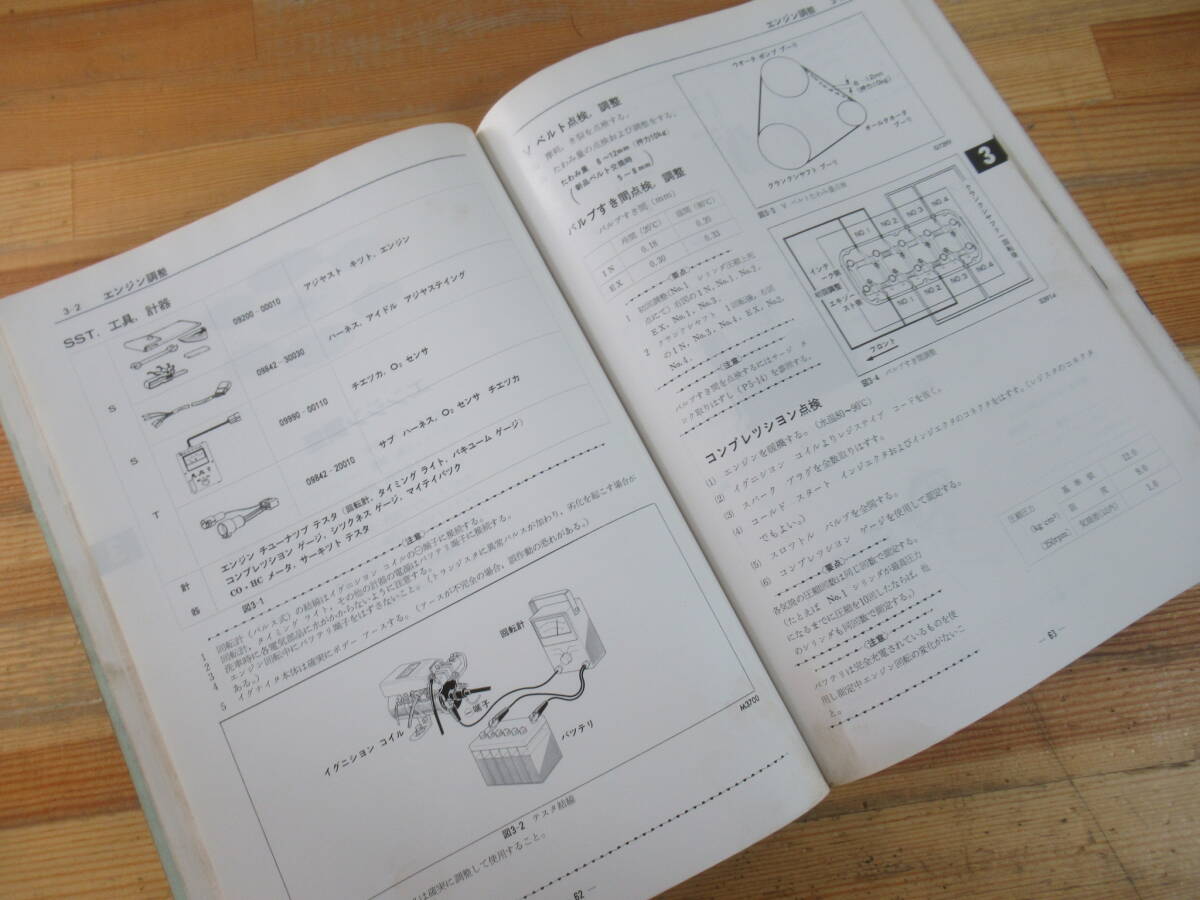 3-2 エンジン調整
SST, 工具, 計器
S
S
T
09200-00010 アジャスト キツト, エンジン
09842-30030 ハーネス, アイドル アジヤステイング
09990-00110 チエツカ, O₂ センサ
09842-20010 サブ ハーネス, O₂ センサ チエツカ
計器
エンジン チューナツプ テスタ (回転計, タイミング ライト, バキユーム ゲージ)
コンプレツシヨン ゲージ, シツクネス ゲージ, マイテイバツク
CO・HC メータ, サーキツト テスタ
図3-1
〈注意〉
1 回転計 (パルス式) の結線はイグニシヨン コイルの㊀端子に接続する。
2 回転計, タイミング ライト, その他の計器の電源はバツテリ端子に接続する。
3 洗車時に各電気部品に水がかからないように注意する。
4 エンジン回転中にバツテリ端子をはずさないこと。(トランジスタに異常パルスが加わり, 劣化を起こす場合が
ある。)
5 イグナイタ本体は確実にボデー アースする。(アースが不完全の場合, 誤作動の恐れがある。)
回転計
㊀端子
イグニシヨン コイル
バツテリ
M3700
図3-2 テスタ結線
は確実に調整して使用すること。
62 —
エンジン調整
3
V ベルト点検, 調整
摩耗, き裂を点検する。
たわみ量の点検および調整をする。
たわみ量 8〜12mm (押力10kg)
(新品ベルト交換時
5〜8mm)
ウオータ ポンプ プーリ
8〜12mm
(押力10kg)
オールタネータ
プーリ
クランクシヤフト プーリ
図3-3 V ベルトたわみ量点検
バルブすき間点検, 調整
バルブすき間 (mm)
冷間 (20℃) 温間 (80℃)
IN 0.18 0.20
EX 0.30 0.33
〈要点〉
1 初回調整 (No.1 シリンダ圧縮上死
点にて) 右図の IN, No.1, No.2,
EX, No.1, No.3,
2 クランクシヤフト 1 回転後, 右図
の IN, No.3, No.4, EX, No.2,
No.4,
〈注意〉
バルブすき間を点検するにはサージ タ
ンク取りはずし (P5-14) を参照する。
NO.1 NO.2 NO.3 NO.4
インテ
ーク側
初回調整
エキゾー
スト側
NO.1 NO.2 NO.3 NO.4
フロント
図3-4 バルブすき間調整
コンプレツシヨン点検
(1) エンジンを暖機する。(水温80〜90℃)
(2) イグニシヨン コイルよりレジステイブ コードを抜く。
(3) スパーク プラグを全数取りはずす。
(4) コールド スタート インジエクタおよびインジエクタのコネクタをはずす。(レジスタのコネクタ
でもよい。)
(5) スロツトル バルブを全開する。
(6) コンプレツシヨン ゲージを使用して測定する。
〈要点〉
各気筒の圧縮回数は同じ回数で測定する。
(たとえば No.1 シリンダが最高圧力
になるまでに圧縮を10回したならば, 他
のシリンダも同回数で測定する。)
〈注意〉
バツテリは完全充電されているものを使
用し測定中エンジン回転の変化がないこ
と。
圧縮圧力 基準値 12.0
(kg/cm²) 限度 9.0
(250rpm) 気筒差(以内) 1.0
— 63 —